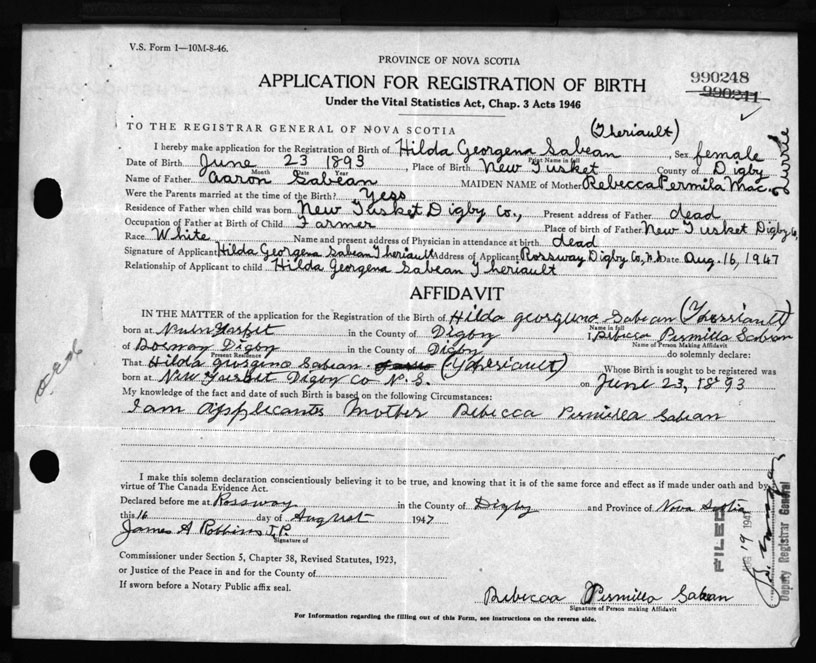 V.S. Form 1—10M-8-46.
PROVINCE OF NOVA SCOTIA
APPLICATION FOR REGISTRATION OF BIRTH
990248
990241
Under the Vital Statistics Act, Chap. 3 Acts 1946
TO THE REGISTRAR GENERAL OF NOVA SCOTIA (Theriault)
I hereby make application for the Registration of Birth of Hilda Georgena Sabean Sex female
Print Name in full
Date of Birth June 23 1893 Place of Birth New Tusket County of Digby
Month Date Year
Name of Father Aaron Sabean MAIDEN NAME of Mother Rebecca Permila Mac.
Were the Parents married at the time of Birth? Yess
Residence of Father when child was born New Tusket Digby Co., Present address of Father dead
Occupation of Father at Birth of Child Farmer Place of birth of Father New Tusket Digby Co,
Race White Name and present address of Physician in attendance at birth dead
Signature of Applicant Hilda Georgena Sabean Theriault Address of Applicant Rossway Digby Co, N.S. Date Aug. 16, 1947
Relationship of Applicant to child Hilda Georgena Sabean Theriault
AFFIDAVIT
IN THE MATTER of the application for the Registration of the Birth of Hilda georguna Sabean (Theriault)
Name in full
born at in the County of Digby I, Rebecca Permilla Sabean
Name of Person Making Affidavit
of Digby in the County of Digby do solemnly declare:
Present Residence
That Hilda georgena Sabean (Theriault) Whose Birth is sought to be registered was
born at New Tusket Digby Co N.S. on June 23, 1893
My knowledge of the fact and date of such Birth is based on the following Circumstances:
I am Applecantes Mother Rebecca Permilla Sabean
I make this solemn declaration conscientiously believing it to be true, and knowing that it is of the same force and effect as if made under oath and by
virtue of The Canada Evidence Act.
Declared before me at Rossway in the County of Digby and Province of Nova Scotia
this 16 day of August 1947
James A Robbins J.P.
Signature of
Commissioner under Section 5, Chapter 38, Revised Statutes, 1923,
or Justice of the Peace in and for the County of
If sworn before a Notary Public affix seal.
Rebecca Permilla Sabean
Signature of Person making Affidavit
For Information regarding the filling out of this Form, see instructions on the reverse side.
FILED
19 1947
Deputy Registrar General